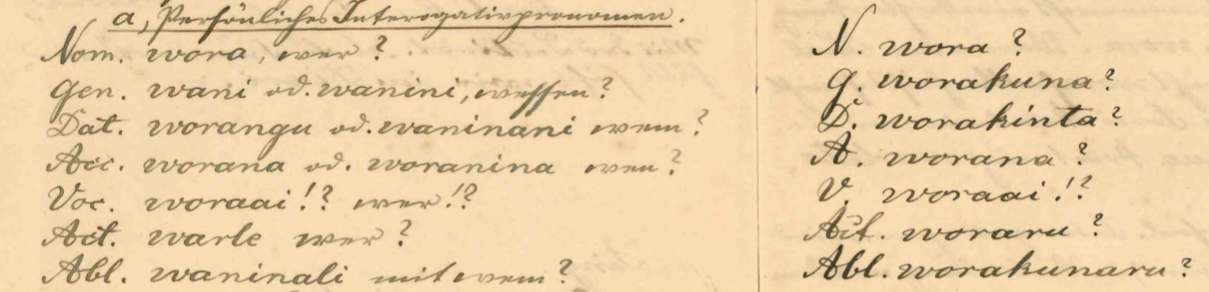 a, Persönliches Interogativpronomen.
Nom. wora, wer?
Gen. wani od. wanini, wessen?
Dat. worangu od. waninani wem?
Acc. worana od. woranina wen?
Voc. woraai!? wer!?
Act. warle wer?
Abl. waninali mit wem?
N. wora?
G. worakuna?
D. worakinta?
A. worana?
V. woraai!?
Act. woraru?
Abl. worakunaru?